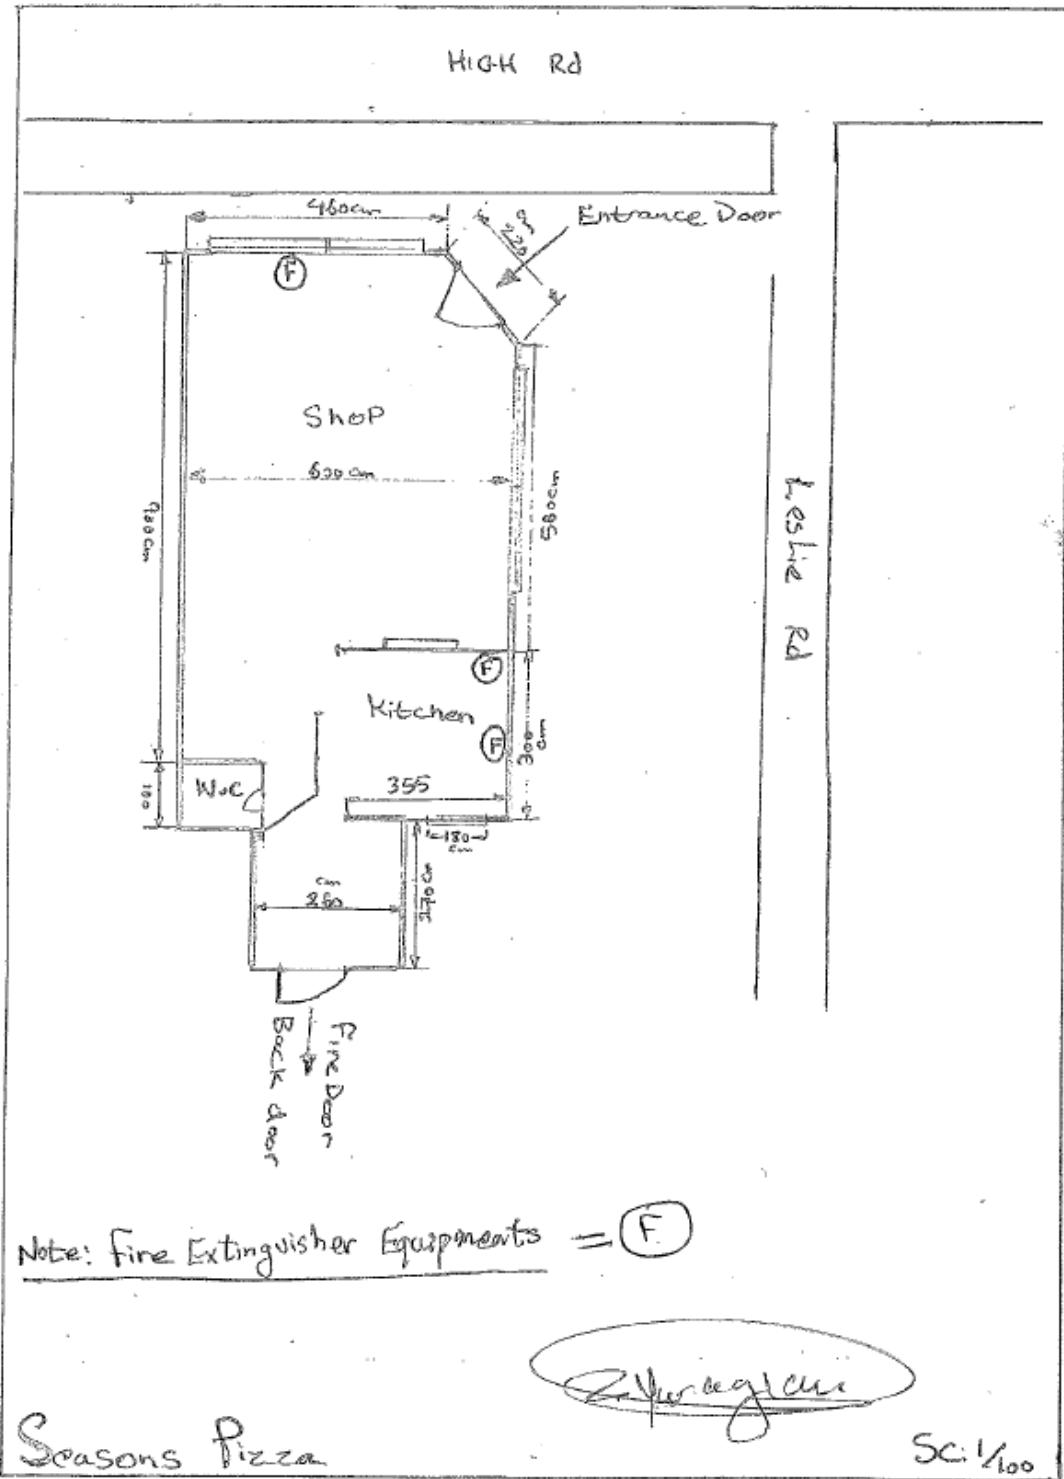 HIGH Rd
460cm
220
Entrance Door
F
Shop
cm
580cm
Leslie Rd
F
Kitchen
F
300
cm
W.C
355
180
cm
cm
260
270cm
Fire Door
Back door
Note: Fire Extinguisher Equipments = F
Seasons Pizza
SC: 1/100